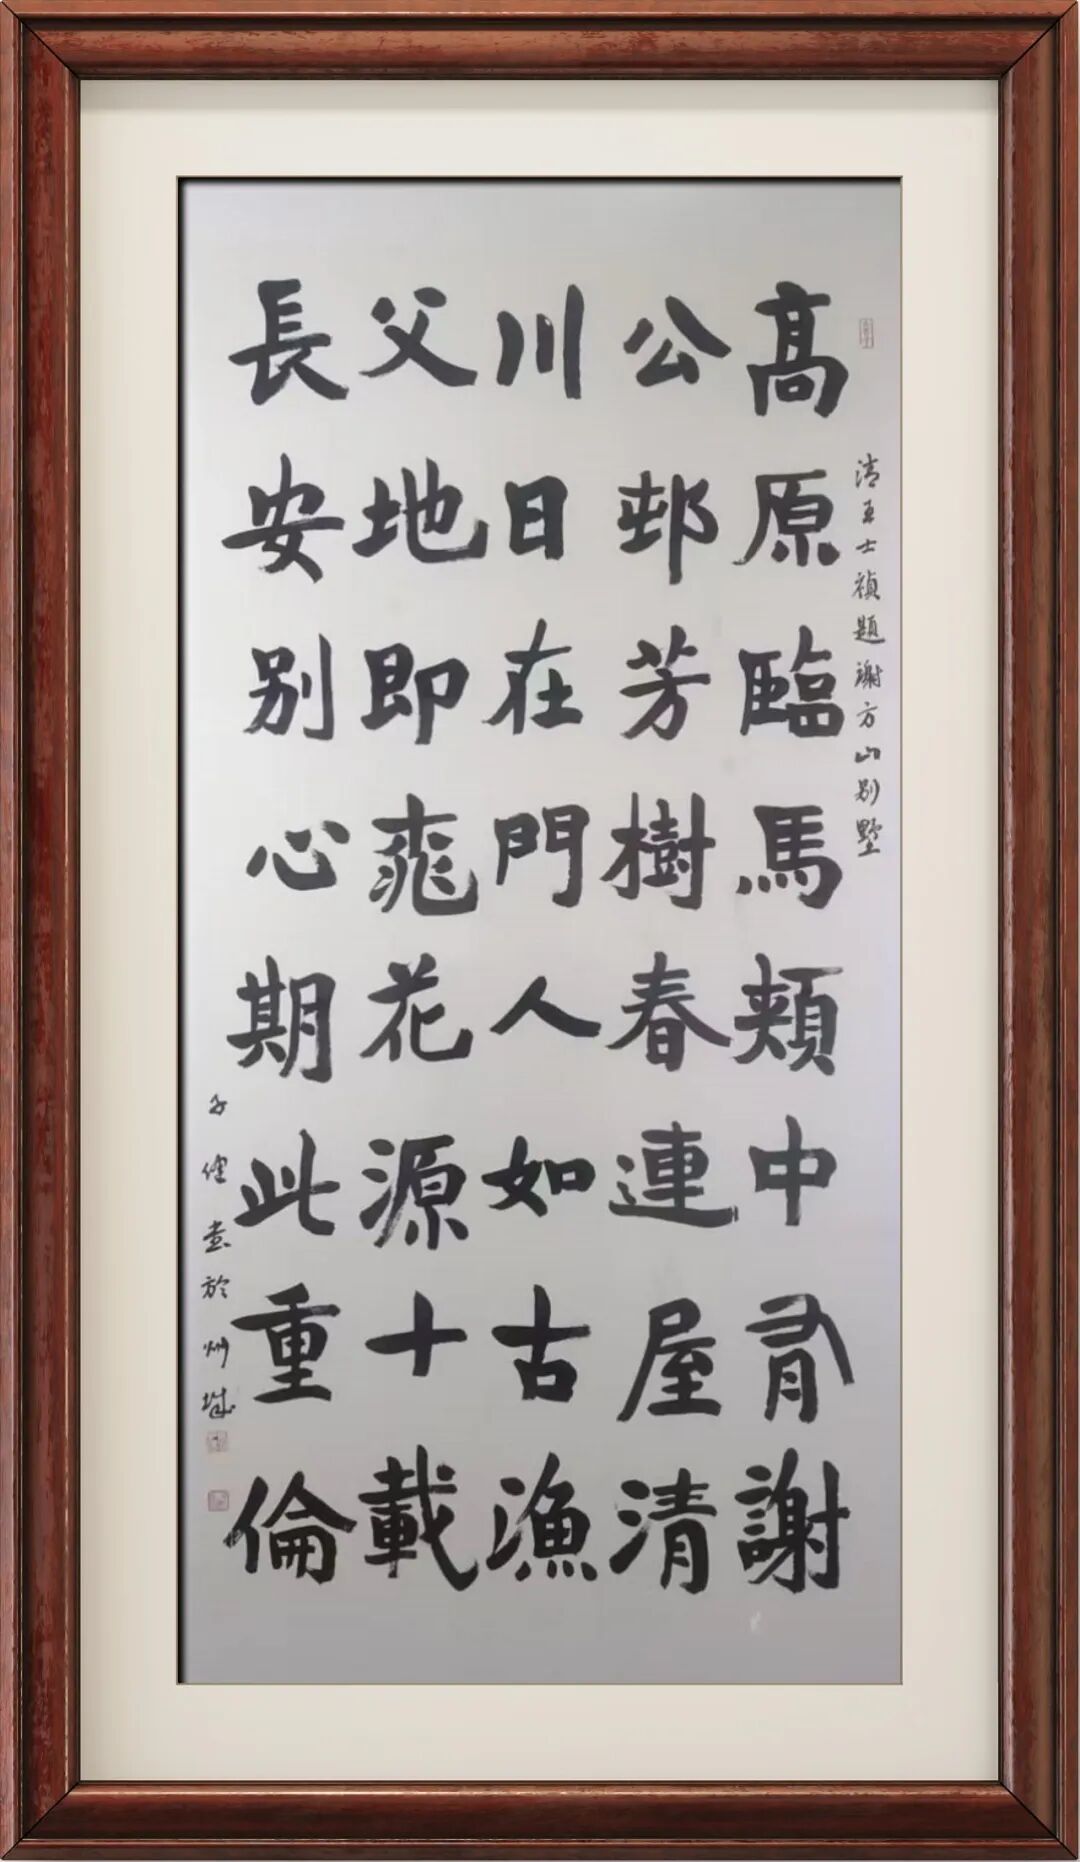 清王士禎題謝方山别墅
髙原臨馬頰中有謝
公邨芳樹春連屋清
川日在門人如古漁
父地即桃花源十載
長安别心期此重倫
子健書於州城